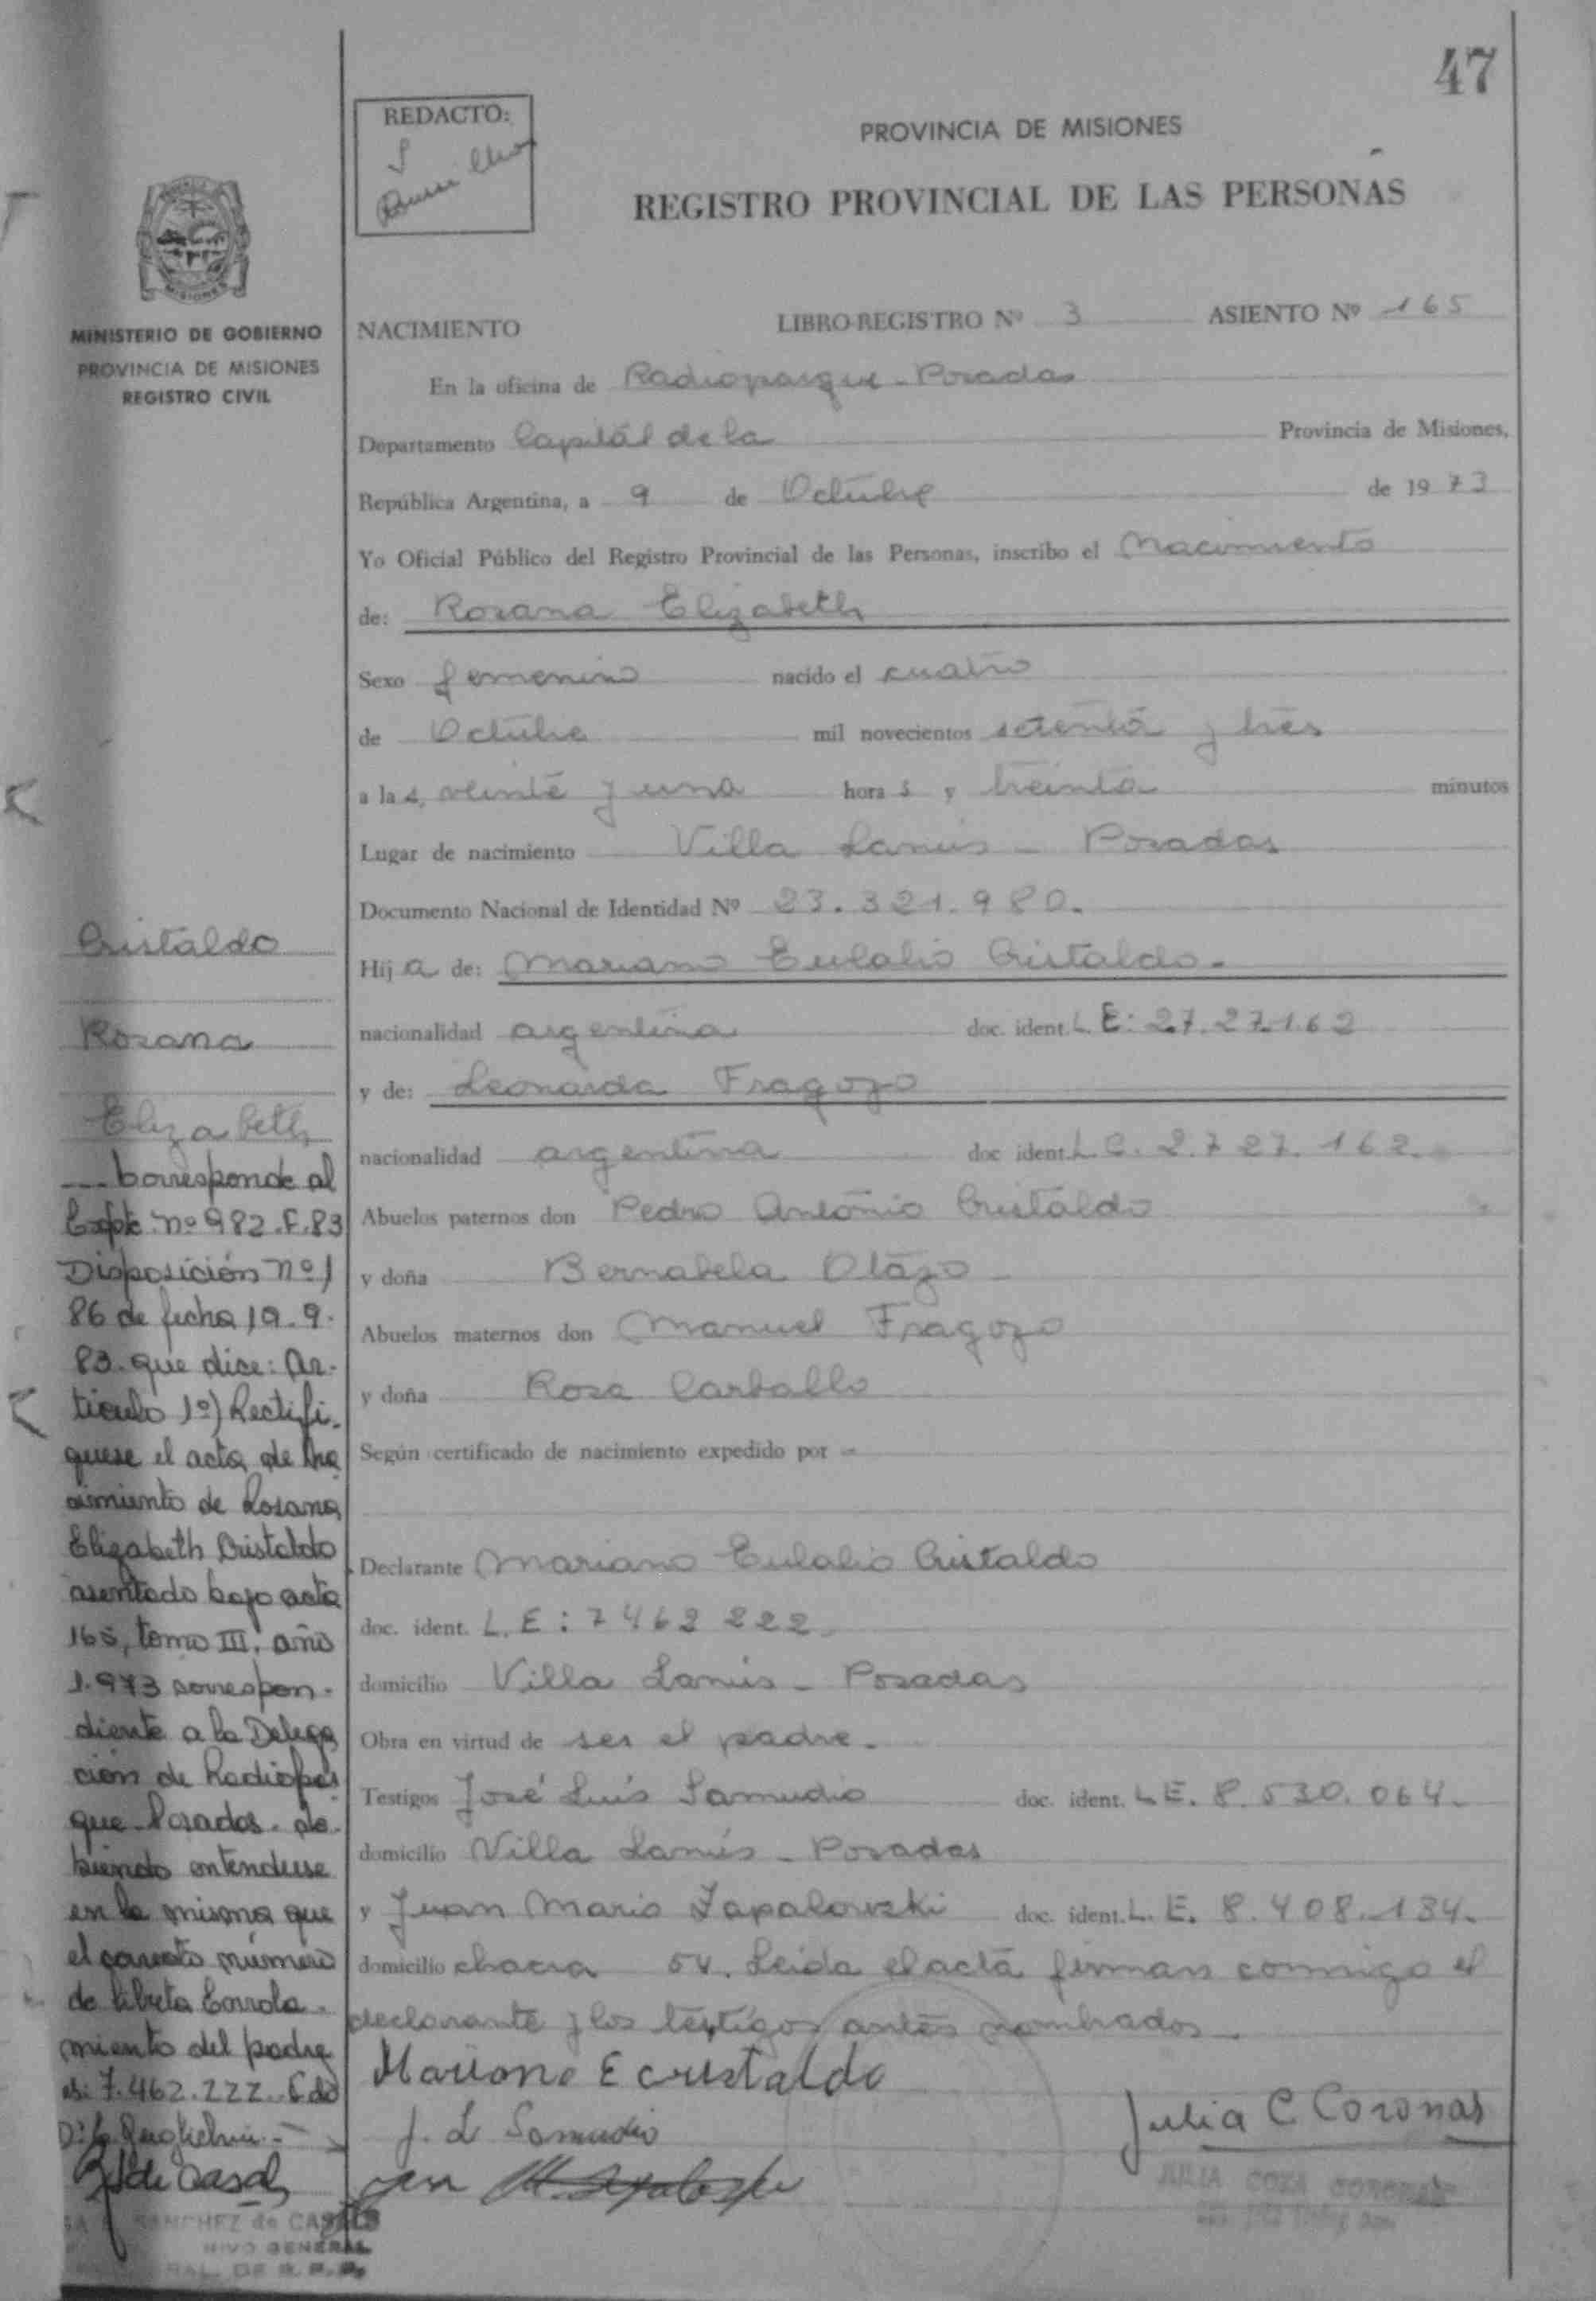 47
REDACTO:
PROVINCIA DE MISIONES
REGISTRO PROVINCIAL DE LAS PERSONAS
MISIONES
MINISTERIO DE GOBIERNO
PROVINCIA DE MISIONES
REGISTRO CIVIL
NACIMIENTO LIBRO-REGISTRO Nº 3 ASIENTO Nº 165
En la oficina de Radioparque - Posadas
Departamento Capital de la Provincia de Misiones,
República Argentina, a 9 de Octubre de 1973
Yo Oficial Público del Registro Provincial de las Personas, inscribo el Nacimiento
de: Rosana Elizabeth
Sexo femenino nacido el cuatro
de Octubre mil novecientos setenta y tres
a las, veinte y una hora s y treinta minutos
Lugar de nacimiento Villa Lanús - Posadas
Documento Nacional de Identidad Nº 23.321.980.
Hij a de: Mariano Eulalio Cristaldo.
nacionalidad argentina doc. ident. L. E: 27.27.162
y de: Leonarda Fragozo
nacionalidad argentina doc ident. L. C. 2.727.162.
Abuelos paternos don Pedro Antonio Cristaldo
y doña Bernabela Otazo
Abuelos maternos don Manuel Fragozo
y doña Rosa Carballo
Según certificado de nacimiento expedido por -
Declarante Mariano Eulalio Cristaldo
doc. ident. L. E: 7462222.
domicilio Villa Lanús - Posadas
Obra en virtud de ser el padre.
Testigos José Luís Samudio doc. ident. L E. 8.530.064.
domicilio Villa Lanús - Posadas
y Juan Mario Zapalowski doc. ident. L. E. 8.408.134.
domicilio chacra 54. Leida el acta firman conmigo el
declarante y los testigos antes nombrados.
Mariano E cristaldo
J. L Samudio
Julia C Coronas
JULIA COZA CORONAS
Cristaldo
Rosana
Elizabeth
--- Corresponde al
Expte. nº 982.F.83
Disposición nº/
86 de fecha 19.9.
83. que dice: Ar-
tículo 1º) Rectifí-
quese el acta de Na
cimiento de Rosana
Elizabeth Cristaldo
asentado bajo acta
165, tomo III, año
1.973 correspon-
diente a la Delega
ción de Radiopar
que Posadas. de-
biendo entenderse
en la misma que
el correcto número
de libreta Enrola-
miento del padre
es: 7.462.222. Fdo
de Casals
SANCHEZ de CASALS
GENERAL